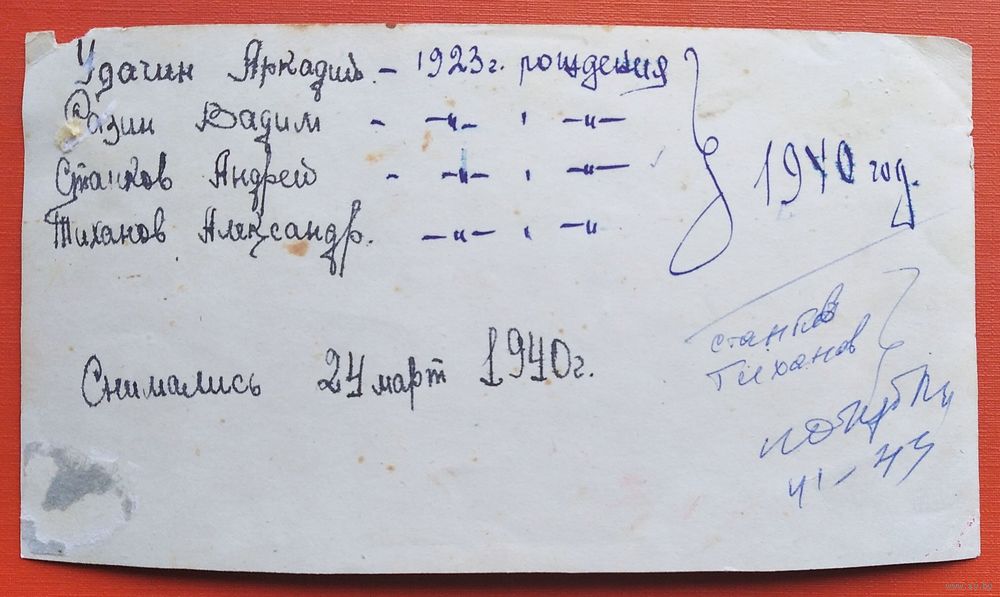 Удачин Аркадий. – 1923 г. рождения
Разин Вадим - –"– , –"–
Станков Андрей - –"– , –"–
Тиханов Александр. –"– , –"–
1940 год.
Снимались 24 март 1940 г.
станков
Тиханов
погибли
41 – 45
www.ay.by